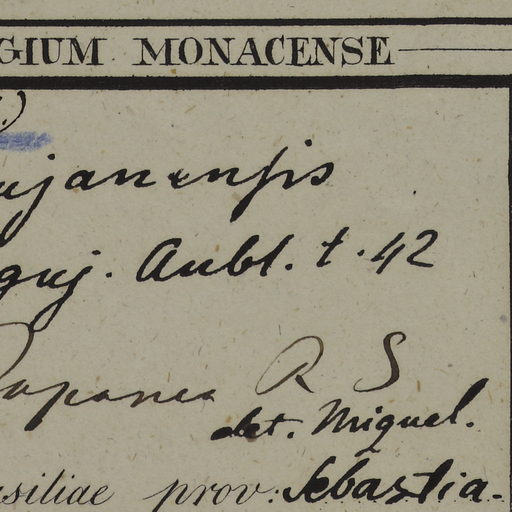 GIUM MONACENSE
.)
ujanensis
guj. Aubl. t. 42
Rapanea R S
det. Miquel.
siliae prov: Sebastia.